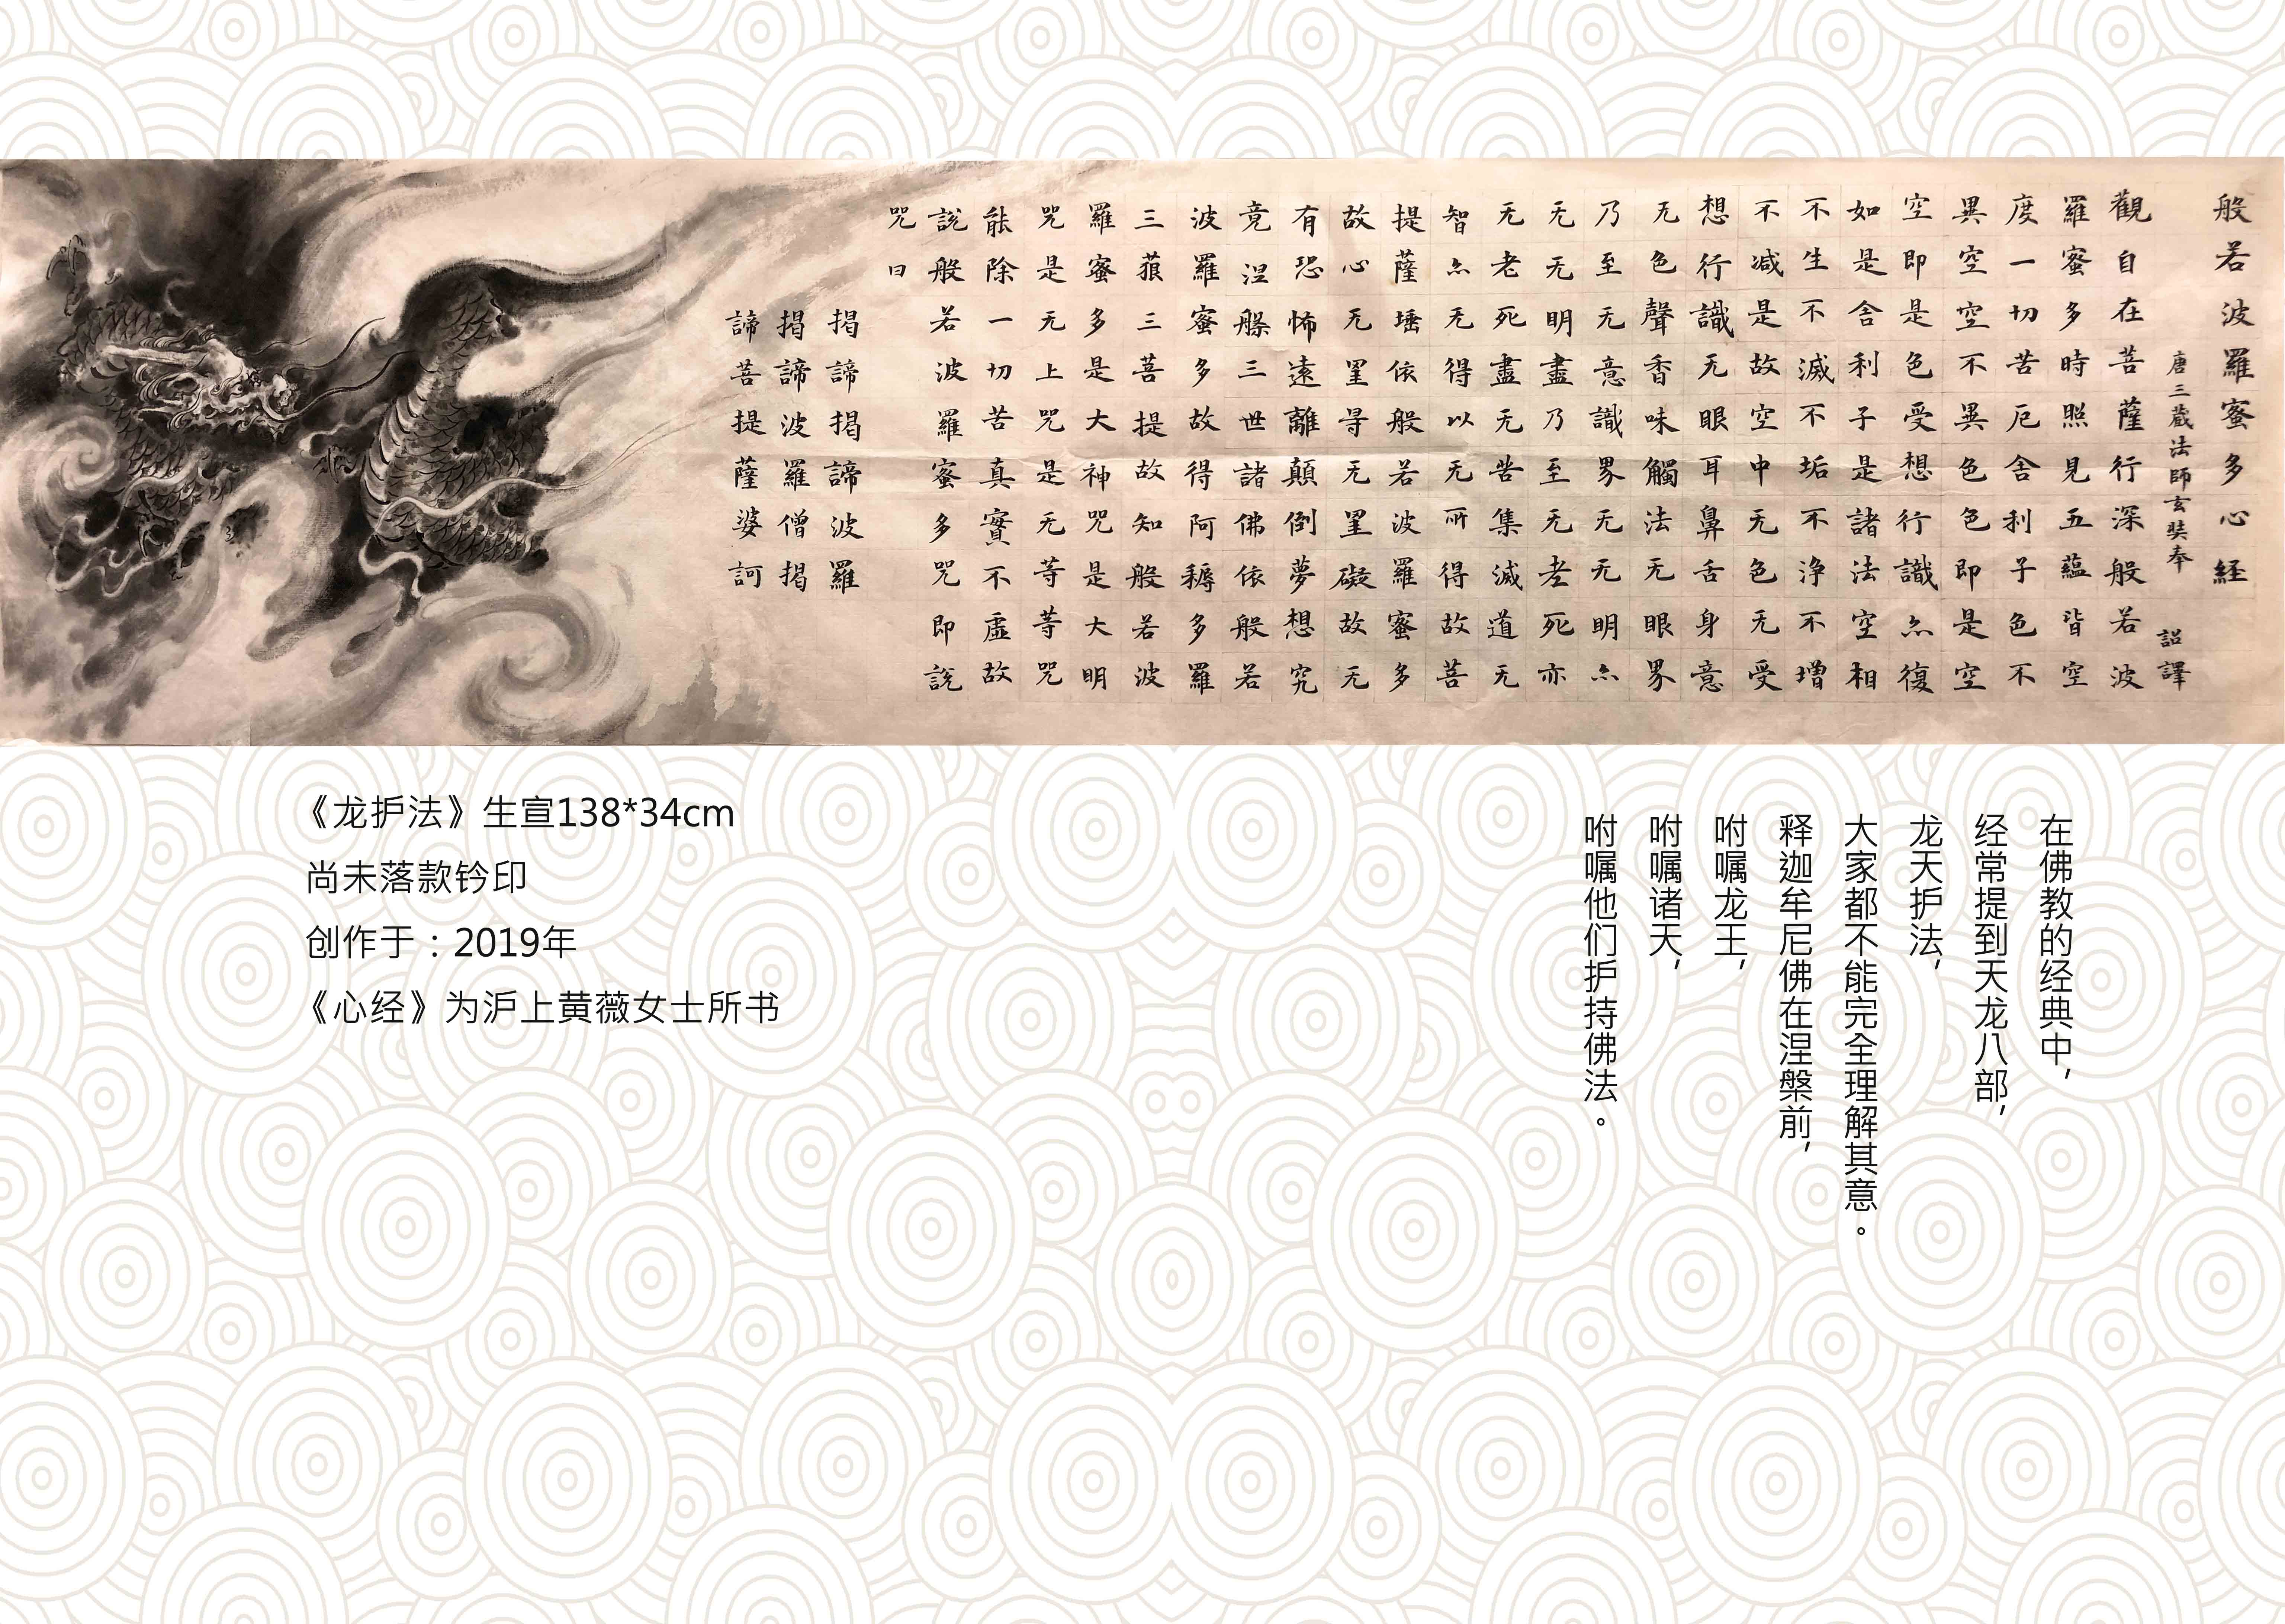 般若波羅蜜多心経
唐三蔵法師玄奘奉 詔譯
觀自在菩薩行深般若波
羅蜜多時照見五蘊皆空
度一切苦厄舎利子色不
異空空不異色色即是空
空即是色受想行識亦復
如是舎利子是諸法空相
不生不滅不垢不浄不増
不減是故空中无色无受
想行識无眼耳鼻舌身意
无色聲香味觸法无眼界
乃至无意識界无无明亦
无无明盡乃至无老死亦
无老死盡无苦集滅道无
智亦无得以无所得故菩
提薩埵依般若波羅蜜多
故心无罣㝵无罣礙故无
有恐怖遠離顛倒夢想究
竟涅槃三世諸佛依般若
波羅蜜多故得阿耨多羅
三藐三菩提故知般若波
羅蜜多是大神咒是大明
咒是无上咒是无等等咒
能除一切苦真實不虛故
說般若波羅蜜多咒即說
咒曰
揭諦揭諦波羅
揭諦波羅僧揭
諦菩提薩婆訶
《龙护法》生宣138*34cm
尚未落款钤印
创作于：2019年
《心经》为沪上黄薇女士所书
在佛教的经典中，
经常提到天龙八部，
龙天护法，
大家都不能完全理解其意。
释迦牟尼佛在涅槃前，
咐嘱龙王，
咐嘱诸天，
咐嘱他们护持佛法。